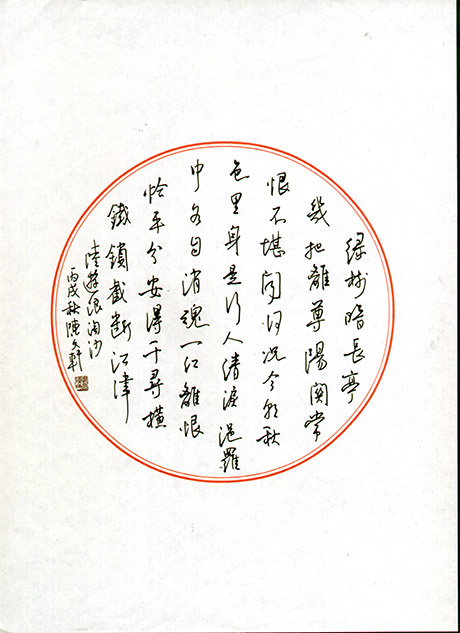 绿树暗長亭
幾把離尊陽關常
恨不堪聞何况今朝秋
色里身是行人清淚浥羅
巾各自消魂一江離恨
恰平分安得千尋橫
鐵鎖截斷江津
陸遊浪淘沙
丙戌秋陳文軒